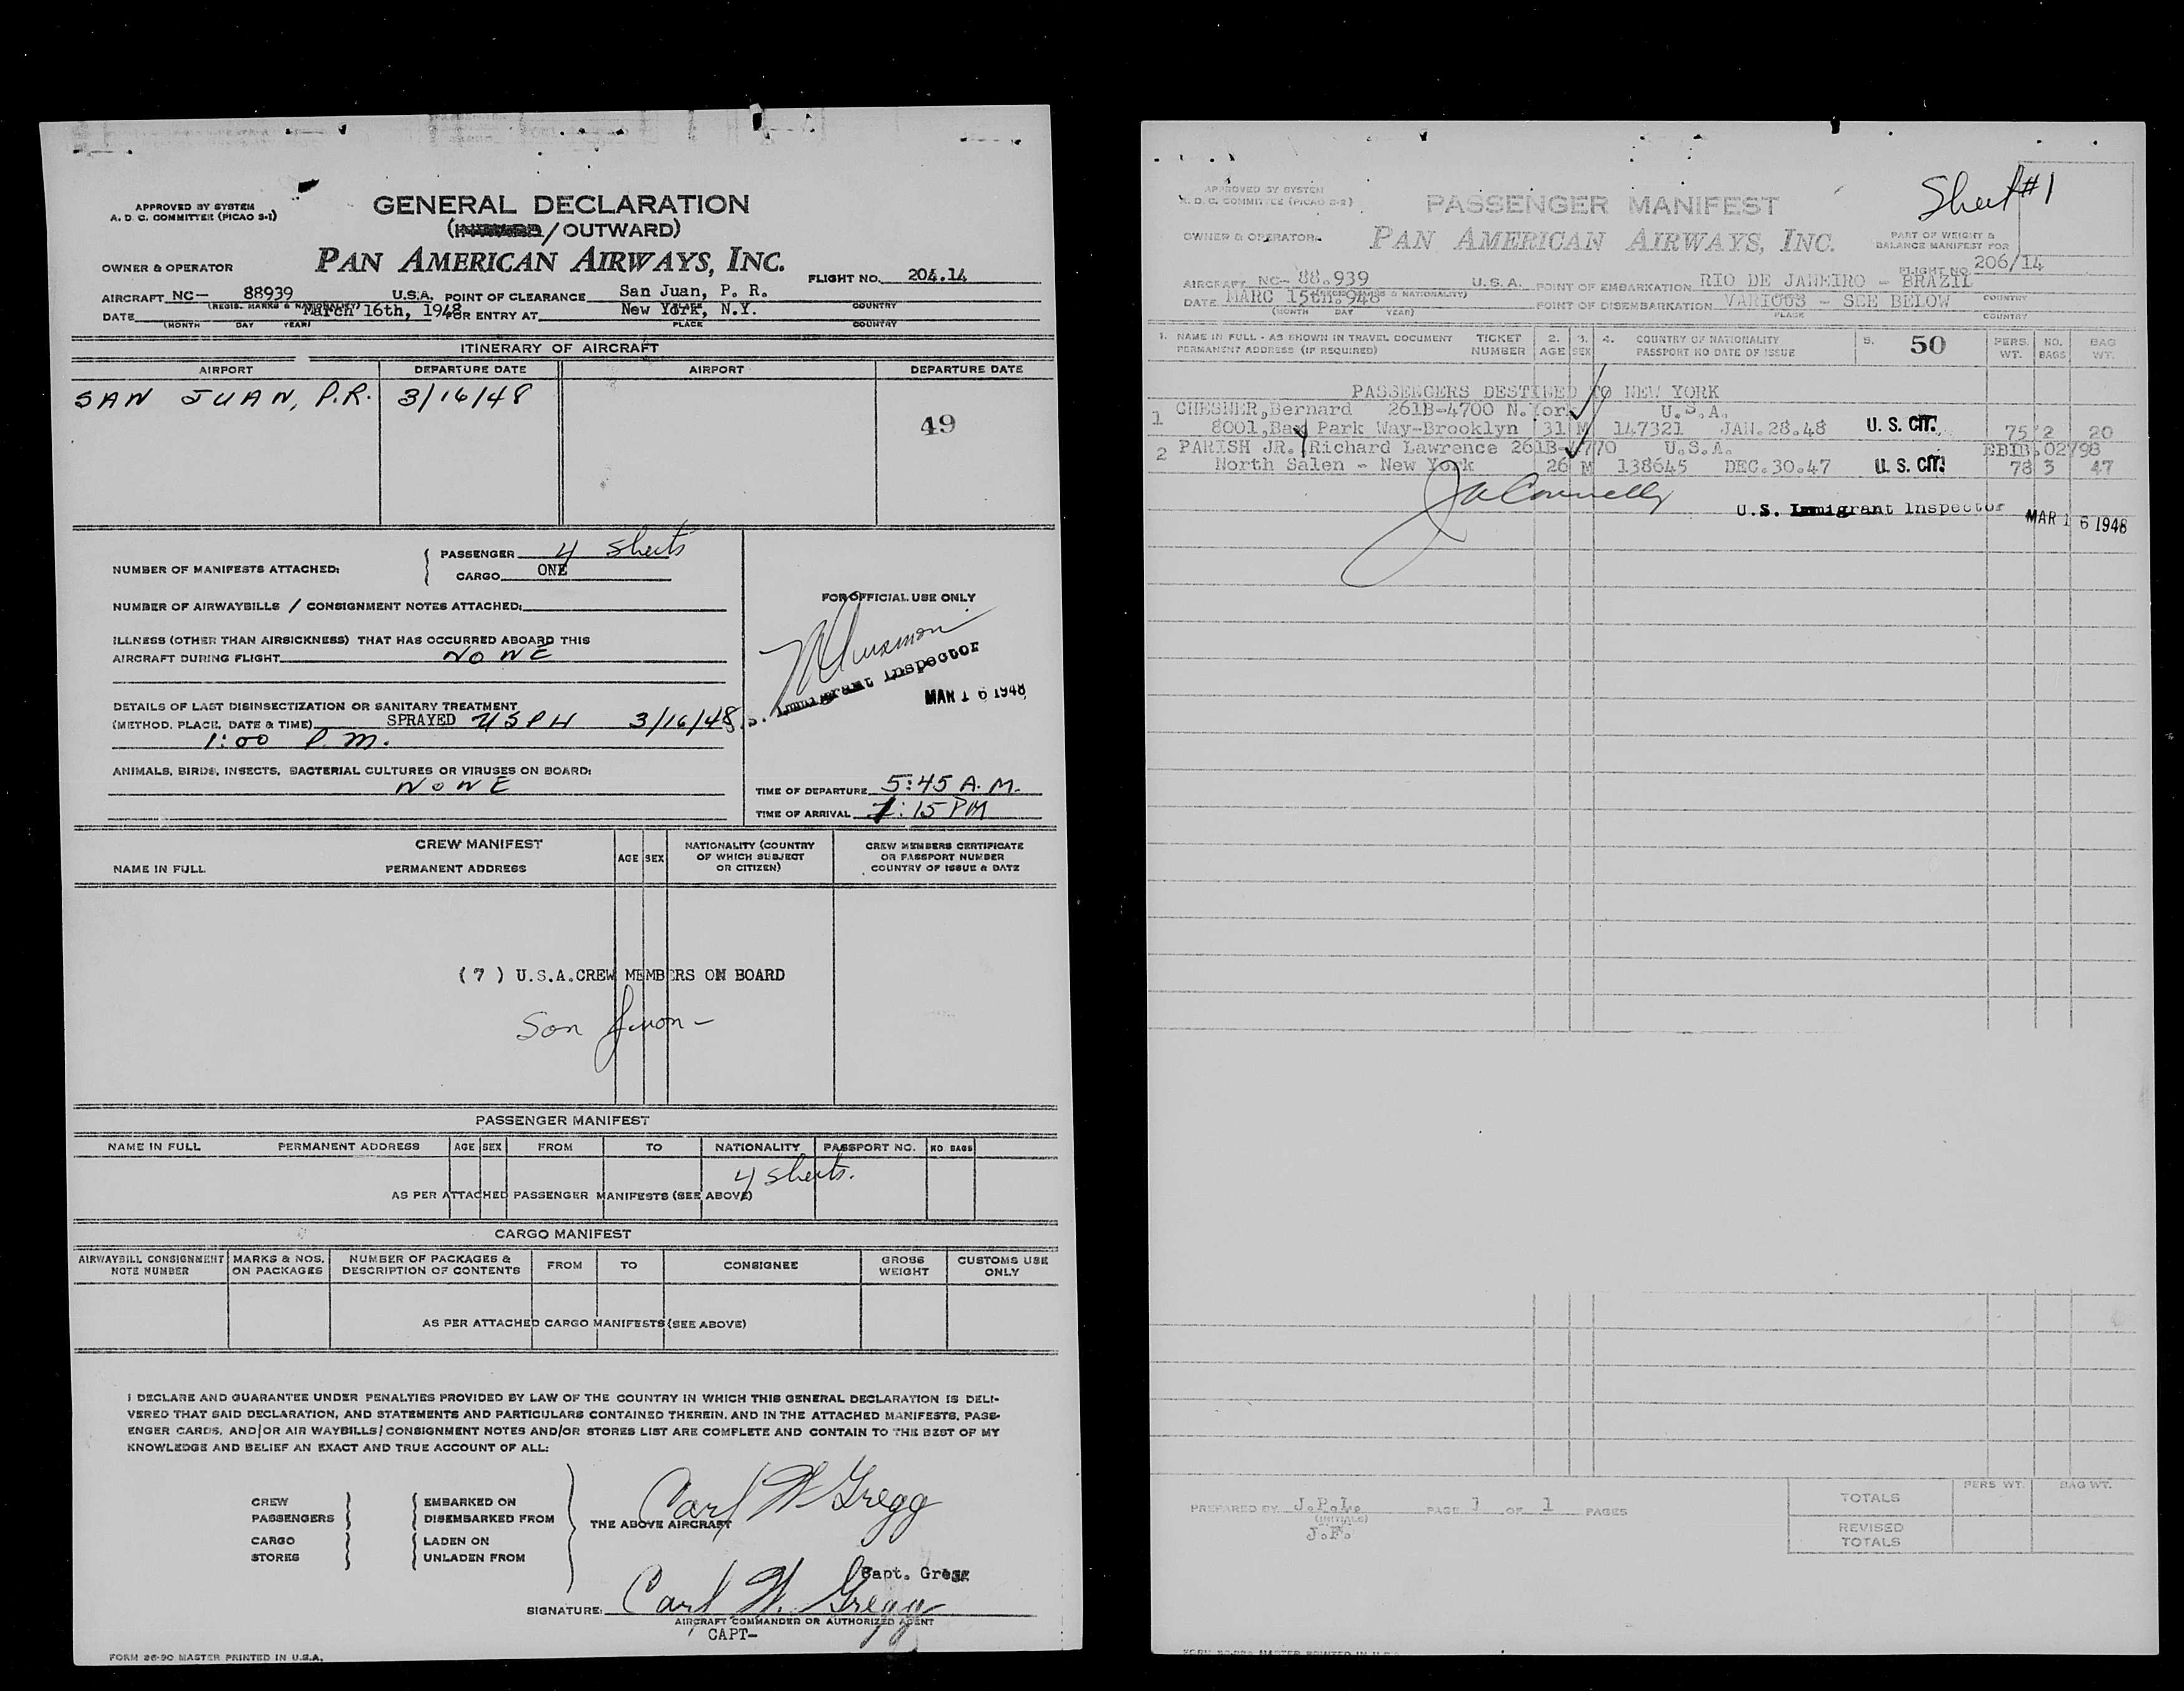 APPROVED BY SYSTEM
A. D. C. COMMITTEE (PICAO S-1)
GENERAL DECLARATION
(INWARD/OUTWARD)
PAN AMERICAN AIRWAYS, INC.
OWNER & OPERATOR
FLIGHT NO. 204.14
AIRCRAFT NC- 88939 U.S.A. POINT OF CLEARANCE San Juan, P. R.
(REGIS. MARKS & NATIONALITY) PLACE COUNTRY
DATE March 16th, 1948 FOR ENTRY AT New York, N.Y.
(MONTH DAY YEAR) PLACE COUNTRY
ITINERARY OF AIRCRAFT
AIRPORT DEPARTURE DATE AIRPORT DEPARTURE DATE
SAN JUAN, P.R. 3/16/48
49
NUMBER OF MANIFESTS ATTACHED: PASSENGER 4 Sheets
CARGO ONE
NUMBER OF AIRWAYBILLS / CONSIGNMENT NOTES ATTACHED:
FOR OFFICIAL USE ONLY
ILLNESS (OTHER THAN AIRSICKNESS) THAT HAS OCCURRED ABOARD THIS
AIRCRAFT DURING FLIGHT NONE
Immigrant Inspector
MAR 16 1948
DETAILS OF LAST DISINSECTIZATION OR SANITARY TREATMENT
(METHOD, PLACE, DATE & TIME) SPRAYED USPH 3/16/48
1:00 P.M.
ANIMALS, BIRDS, INSECTS, BACTERIAL CULTURES OR VIRUSES ON BOARD:
NONE
TIME OF DEPARTURE 5:45 A.M.
TIME OF ARRIVAL 1:15 PM
CREW MANIFEST
NAME IN FULL PERMANENT ADDRESS AGE SEX NATIONALITY (COUNTRY OF WHICH SUBJECT OR CITIZEN) CREW MEMBERS CERTIFICATE OR PASSPORT NUMBER COUNTRY OF ISSUE & DATE
( 7 ) U.S.A.CREW MEMBERS ON BOARD
San Juan -
PASSENGER MANIFEST
NAME IN FULL PERMANENT ADDRESS AGE SEX FROM TO NATIONALITY PASSPORT NO. NO BAGS
4 sheets.
AS PER ATTACHED PASSENGER MANIFESTS (SEE ABOVE)
CARGO MANIFEST
AIRWAYBILL CONSIGNMENT NOTE NUMBER MARKS & NOS. ON PACKAGES NUMBER OF PACKAGES & DESCRIPTION OF CONTENTS FROM TO CONSIGNEE GROSS WEIGHT CUSTOMS USE ONLY
AS PER ATTACHED CARGO MANIFESTS (SEE ABOVE)
I DECLARE AND GUARANTEE UNDER PENALTIES PROVIDED BY LAW OF THE COUNTRY IN WHICH THIS GENERAL DECLARATION IS DELI-
VERED THAT SAID DECLARATION, AND STATEMENTS AND PARTICULARS CONTAINED THEREIN, AND IN THE ATTACHED MANIFESTS, PASS-
ENGER CARDS, AND/OR AIR WAYBILLS/CONSIGNMENT NOTES AND/OR STORES LIST ARE COMPLETE AND CONTAIN TO THE BEST OF MY
KNOWLEDGE AND BELIEF AN EXACT AND TRUE ACCOUNT OF ALL:
CREW EMBARKED ON
PASSENGERS DISEMBARKED FROM
Carl W Gregg
THE ABOVE AIRCRAFT
CARGO LADEN ON
STORES UNLADEN FROM
Capt. Gregg
SIGNATURE: Carl W. Gregg
AIRCRAFT COMMANDER OR AUTHORIZED AGENT
CAPT-
FORM 86-90 MASTER PRINTED IN U.S.A.
APPROVED BY SYSTEM
A. D. C. COMMITTEE (PICAO S-2)
PASSENGER MANIFEST
Sheet #1
OWNER & OPERATOR
PAN AMERICAN AIRWAYS, INC.
PART OF WEIGHT &
BALANCE MANIFEST FOR
FLIGHT NO. 206/14
AIRCRAFT NC- 88.939 U.S.A. POINT OF EMBARKATION RIO DE JANEIRO - BRAZIL
DATE MARC 15th.948 POINT OF DISEMBARKATION VARIOUS - SEE BELOW
(MONTH DAY YEAR) PLACE COUNTRY
1. NAME IN FULL - AS SHOWN IN TRAVEL DOCUMENT PERMANENT ADDRESS (IF REQUIRED) TICKET NUMBER 2. AGE 3. SEX 4. COUNTRY OF NATIONALITY PASSPORT NO DATE OF ISSUE 5. 50 PERS. WT. NO. BAGS BAG WT.
PASSENGERS DESTINED TO NEW YORK
1 CHESNER,Bernard 261B-4700 N.York U.S.A.
8001,Bay Park Way-Brooklyn 31 M 147321 JAN.28.48 U. S. CIT. 75 2 20
2 PARISH JR. Richard Lawrence 261B-4770 U.S.A. EBIB.02798
North Salen - New York 26 M 138645 DEC.30.47 U. S. CIT. 78 3 47
U.S. Immigrant Inspector MAR 16 1948
PREPARED BY J.P.L. PAGE 1 OF 1 PAGES
(INITIALS)
J.F.
TOTALS PERS WT. BAG WT.
REVISED
TOTALS